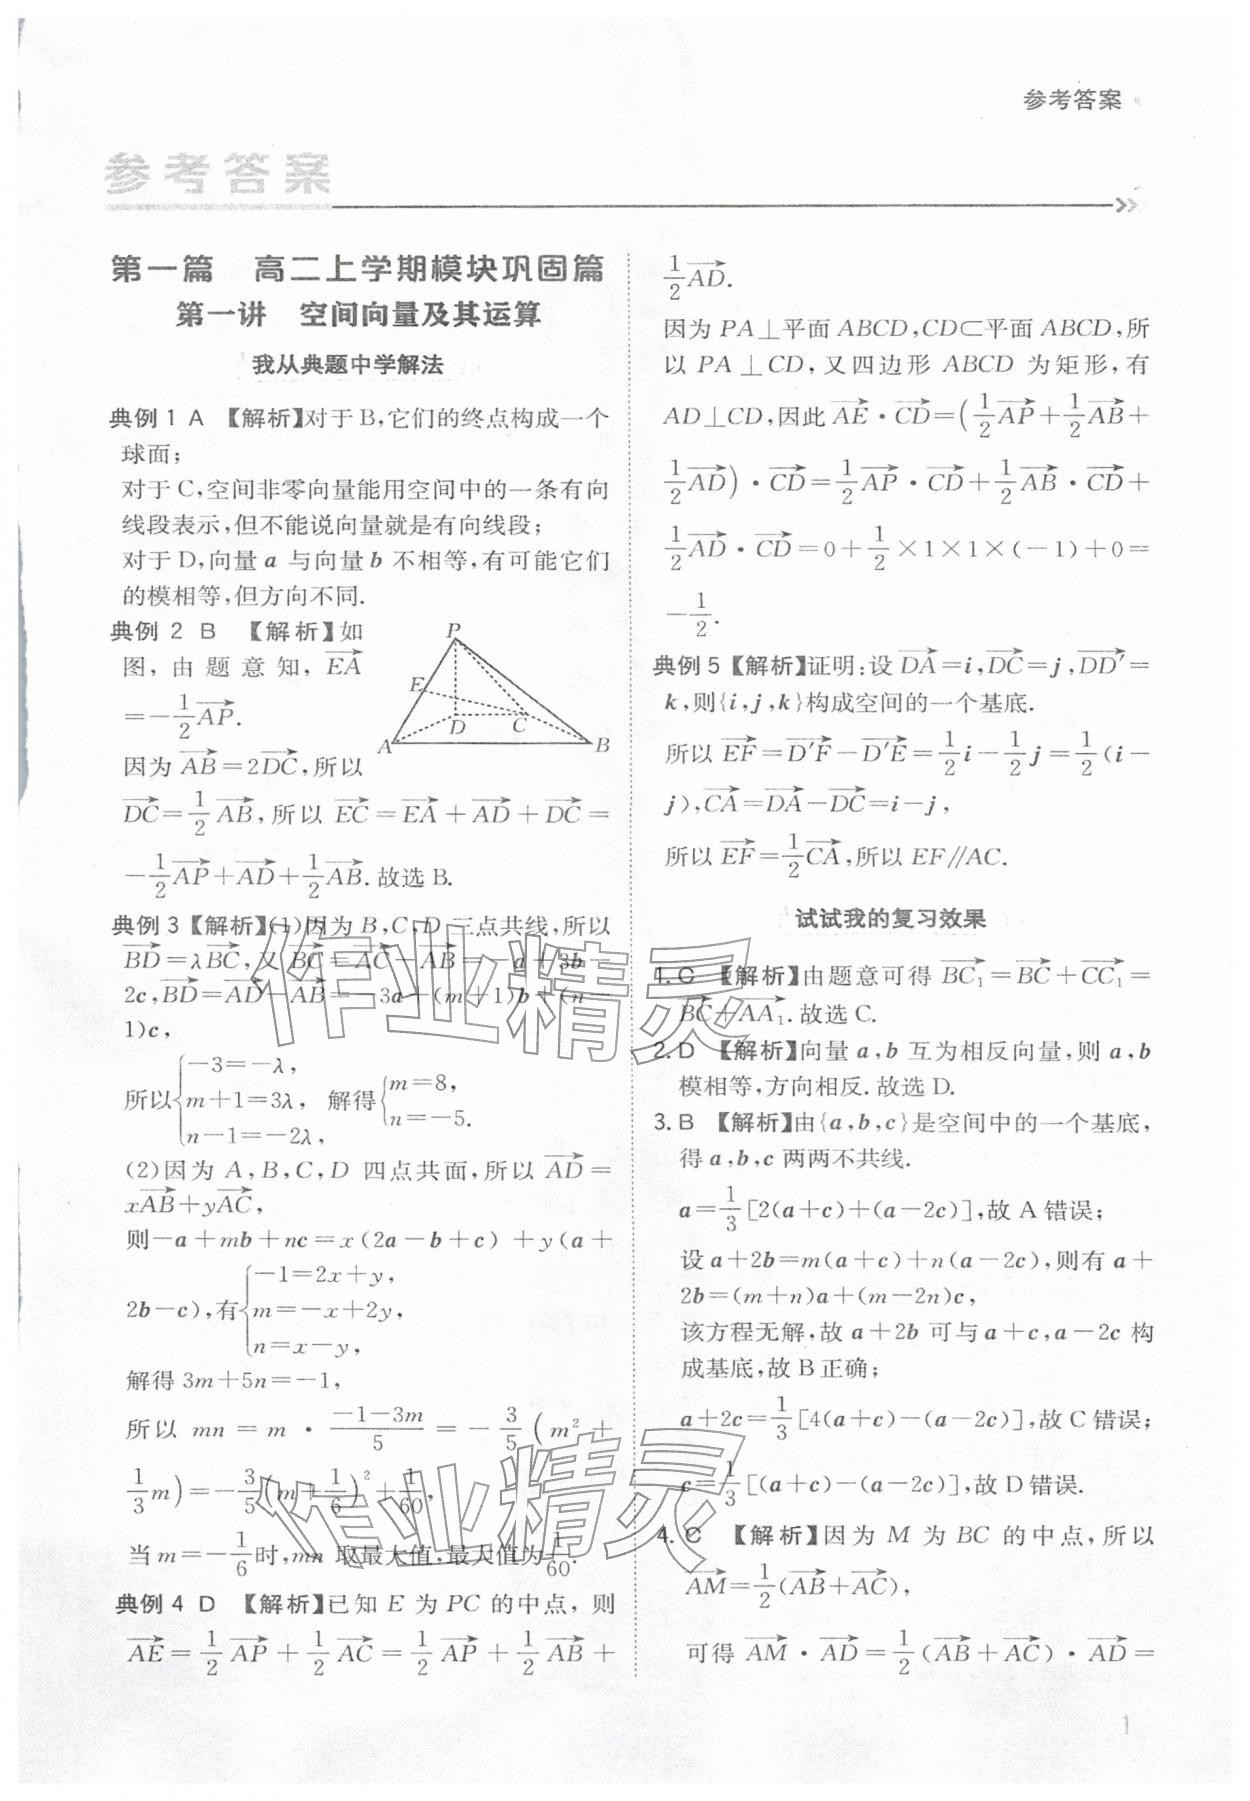 参考答案
参考答案
第一篇 高二上学期模块巩固篇
第一讲 空间向量及其运算
我从典题中学解法
典例1 A 【解析】对于B,它们的终点构成一个
球面;
对于C,空间非零向量能用空间中的一条有向
线段表示,但不能说向量就是有向线段;
对于D,向量 a 与向量 b 不相等,有可能它们
的模相等,但方向不同.
典例2 B 【解析】如
图,由题意知,$\overrightarrow{EA}$
$=-\frac{1}{2}\overrightarrow{AP}$.
P
E
D
C
A
B
因为 $\overrightarrow{AB}=2\overrightarrow{DC}$,所以
$\overrightarrow{DC}=\frac{1}{2}\overrightarrow{AB}$,所以 $\overrightarrow{EC}=\overrightarrow{EA}+\overrightarrow{AD}+\overrightarrow{DC}=$
$-\frac{1}{2}\overrightarrow{AP}+\overrightarrow{AD}+\frac{1}{2}\overrightarrow{AB}$.故选B.
典例3【解析】(1)因为 B,C,D 三点共线,所以
$\overrightarrow{BD}=λ\overrightarrow{BC}$,又 $\overrightarrow{BC}=\overrightarrow{AC}-\overrightarrow{AB}=-a+3b-$
2c,$\overrightarrow{BD}=\overrightarrow{AD}-\overrightarrow{AB}=-3a+(m+1)b+(n-$
1)c,
所以$\begin{cases}-3=-λ,\\m+1=3λ,\\n-1=-2λ,\end{cases}$ 解得$\begin{cases}m=8,\\n=-5.\end{cases}$
(2)因为 A,B,C,D 四点共面,所以 $\overrightarrow{AD}=$
$x\overrightarrow{AB}+y\overrightarrow{AC}$,
则-a+mb+nc=x(2a-b+c)+y(a+
2b-c),有$\begin{cases}-1=2x+y,\\m=-x+2y,\\n=x-y,\end{cases}$
解得 3m+5n=-1,
所以 $mn=m·\frac{-1-3m}{5}=-\frac{3}{5}(m^2+$
$\frac{1}{3}m)=-\frac{3}{5}(m+\frac{1}{6})^2+\frac{1}{60}$,
当 $m=-\frac{1}{6}$时,mn 取最大值,最大值为$\frac{1}{60}$.
典例4 D 【解析】已知 E 为 PC 的中点,则
$\overrightarrow{AE}=\frac{1}{2}\overrightarrow{AP}+\frac{1}{2}\overrightarrow{AC}=\frac{1}{2}\overrightarrow{AP}+\frac{1}{2}\overrightarrow{AB}+$
$\frac{1}{2}\overrightarrow{AD}$.
因为 PA⊥平面 ABCD,CD⊂平面 ABCD,所
以 PA⊥CD,又四边形 ABCD 为矩形,有
AD⊥CD,因此 $\overrightarrow{AE}·\overrightarrow{CD}=(\frac{1}{2}\overrightarrow{AP}+\frac{1}{2}\overrightarrow{AB}+$
$\frac{1}{2}\overrightarrow{AD})·\overrightarrow{CD}=\frac{1}{2}\overrightarrow{AP}·\overrightarrow{CD}+\frac{1}{2}\overrightarrow{AB}·\overrightarrow{CD}+$
$\frac{1}{2}\overrightarrow{AD}·\overrightarrow{CD}=0+\frac{1}{2}×1×1×(-1)+0=$
$-\frac{1}{2}$.
典例5【解析】证明:设 $\overrightarrow{DA}=i$,$\overrightarrow{DC}=j$,$\overrightarrow{DD'}=$
k,则{i,j,k}构成空间的一个基底.
所以 $\overrightarrow{EF}=\overrightarrow{D'F}-\overrightarrow{D'E}=\frac{1}{2}i-\frac{1}{2}j=\frac{1}{2}(i-$
j),$\overrightarrow{CA}=\overrightarrow{DA}-\overrightarrow{DC}=i-j$,
所以 $\overrightarrow{EF}=\frac{1}{2}\overrightarrow{CA}$,所以 EF∥AC.
试试我的复习效果
1. C 【解析】由题意可得 $\overrightarrow{BC_1}=\overrightarrow{BC}+\overrightarrow{CC_1}=$
$\overrightarrow{BC}+\overrightarrow{AA_1}$.故选C.
2. D 【解析】向量 a,b 互为相反向量,则 a,b
模相等,方向相反.故选D.
3. B 【解析】由{a,b,c}是空间中的一个基底,
得 a,b,c 两两不共线.
$a=\frac{1}{3}[2(a+c)+(a-2c)]$,故 A 错误;
设 a+2b=m(a+c)+n(a-2c),则有 a+
2b=(m+n)a+(m-2n)c,
该方程无解,故 a+2b 可与 a+c,a-2c 构
成基底,故 B 正确;
$a+2c=\frac{1}{3}[4(a+c)-(a-2c)]$,故 C 错误;
$c=\frac{1}{3}[(a+c)-(a-2c)]$,故 D 错误.
4. C 【解析】因为 M 为 BC 的中点,所以
$\overrightarrow{AM}=\frac{1}{2}(\overrightarrow{AB}+\overrightarrow{AC})$,
可得 $\overrightarrow{AM}·\overrightarrow{AD}=\frac{1}{2}(\overrightarrow{AB}+\overrightarrow{AC})·\overrightarrow{AD}=$
作业精灵
作业精灵
1